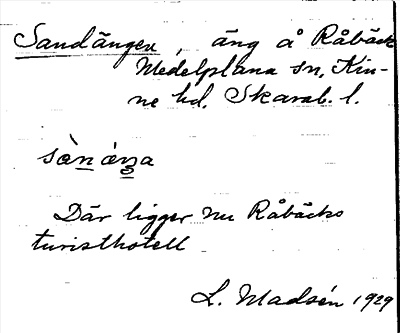 Sandängen, äng å Råbäck
Medelplana sn, Kin-
ne hd. Skarab. l.
sànáŋa
Där ligger nu Råbäcks
turisthotell
L. Madsén 1929